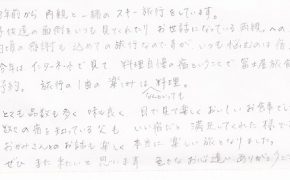 年前から 両親と一緒のスキー旅行をしています。
子供達の面倒をいつも見てくれたり お世話になっている両親への
日頃の感謝も込めての旅行なのですが、いつも悩むのは宿
今年は インターネットで見て 料理自慢の宿ということで 富士屋旅館
予約。 旅行の1番の楽しみは 料理。
なんといっても
とても品数も多く 味も良く 見た目も楽しく おいしいお食事とし
数々の宿を知っている父も いい宿だと 満足してくれた様で
おかみさんとのお話も楽しく 本当に 楽しい旅となりました。
ぜひ また 来たいと思います 色々なお心遣い ありがとうござ